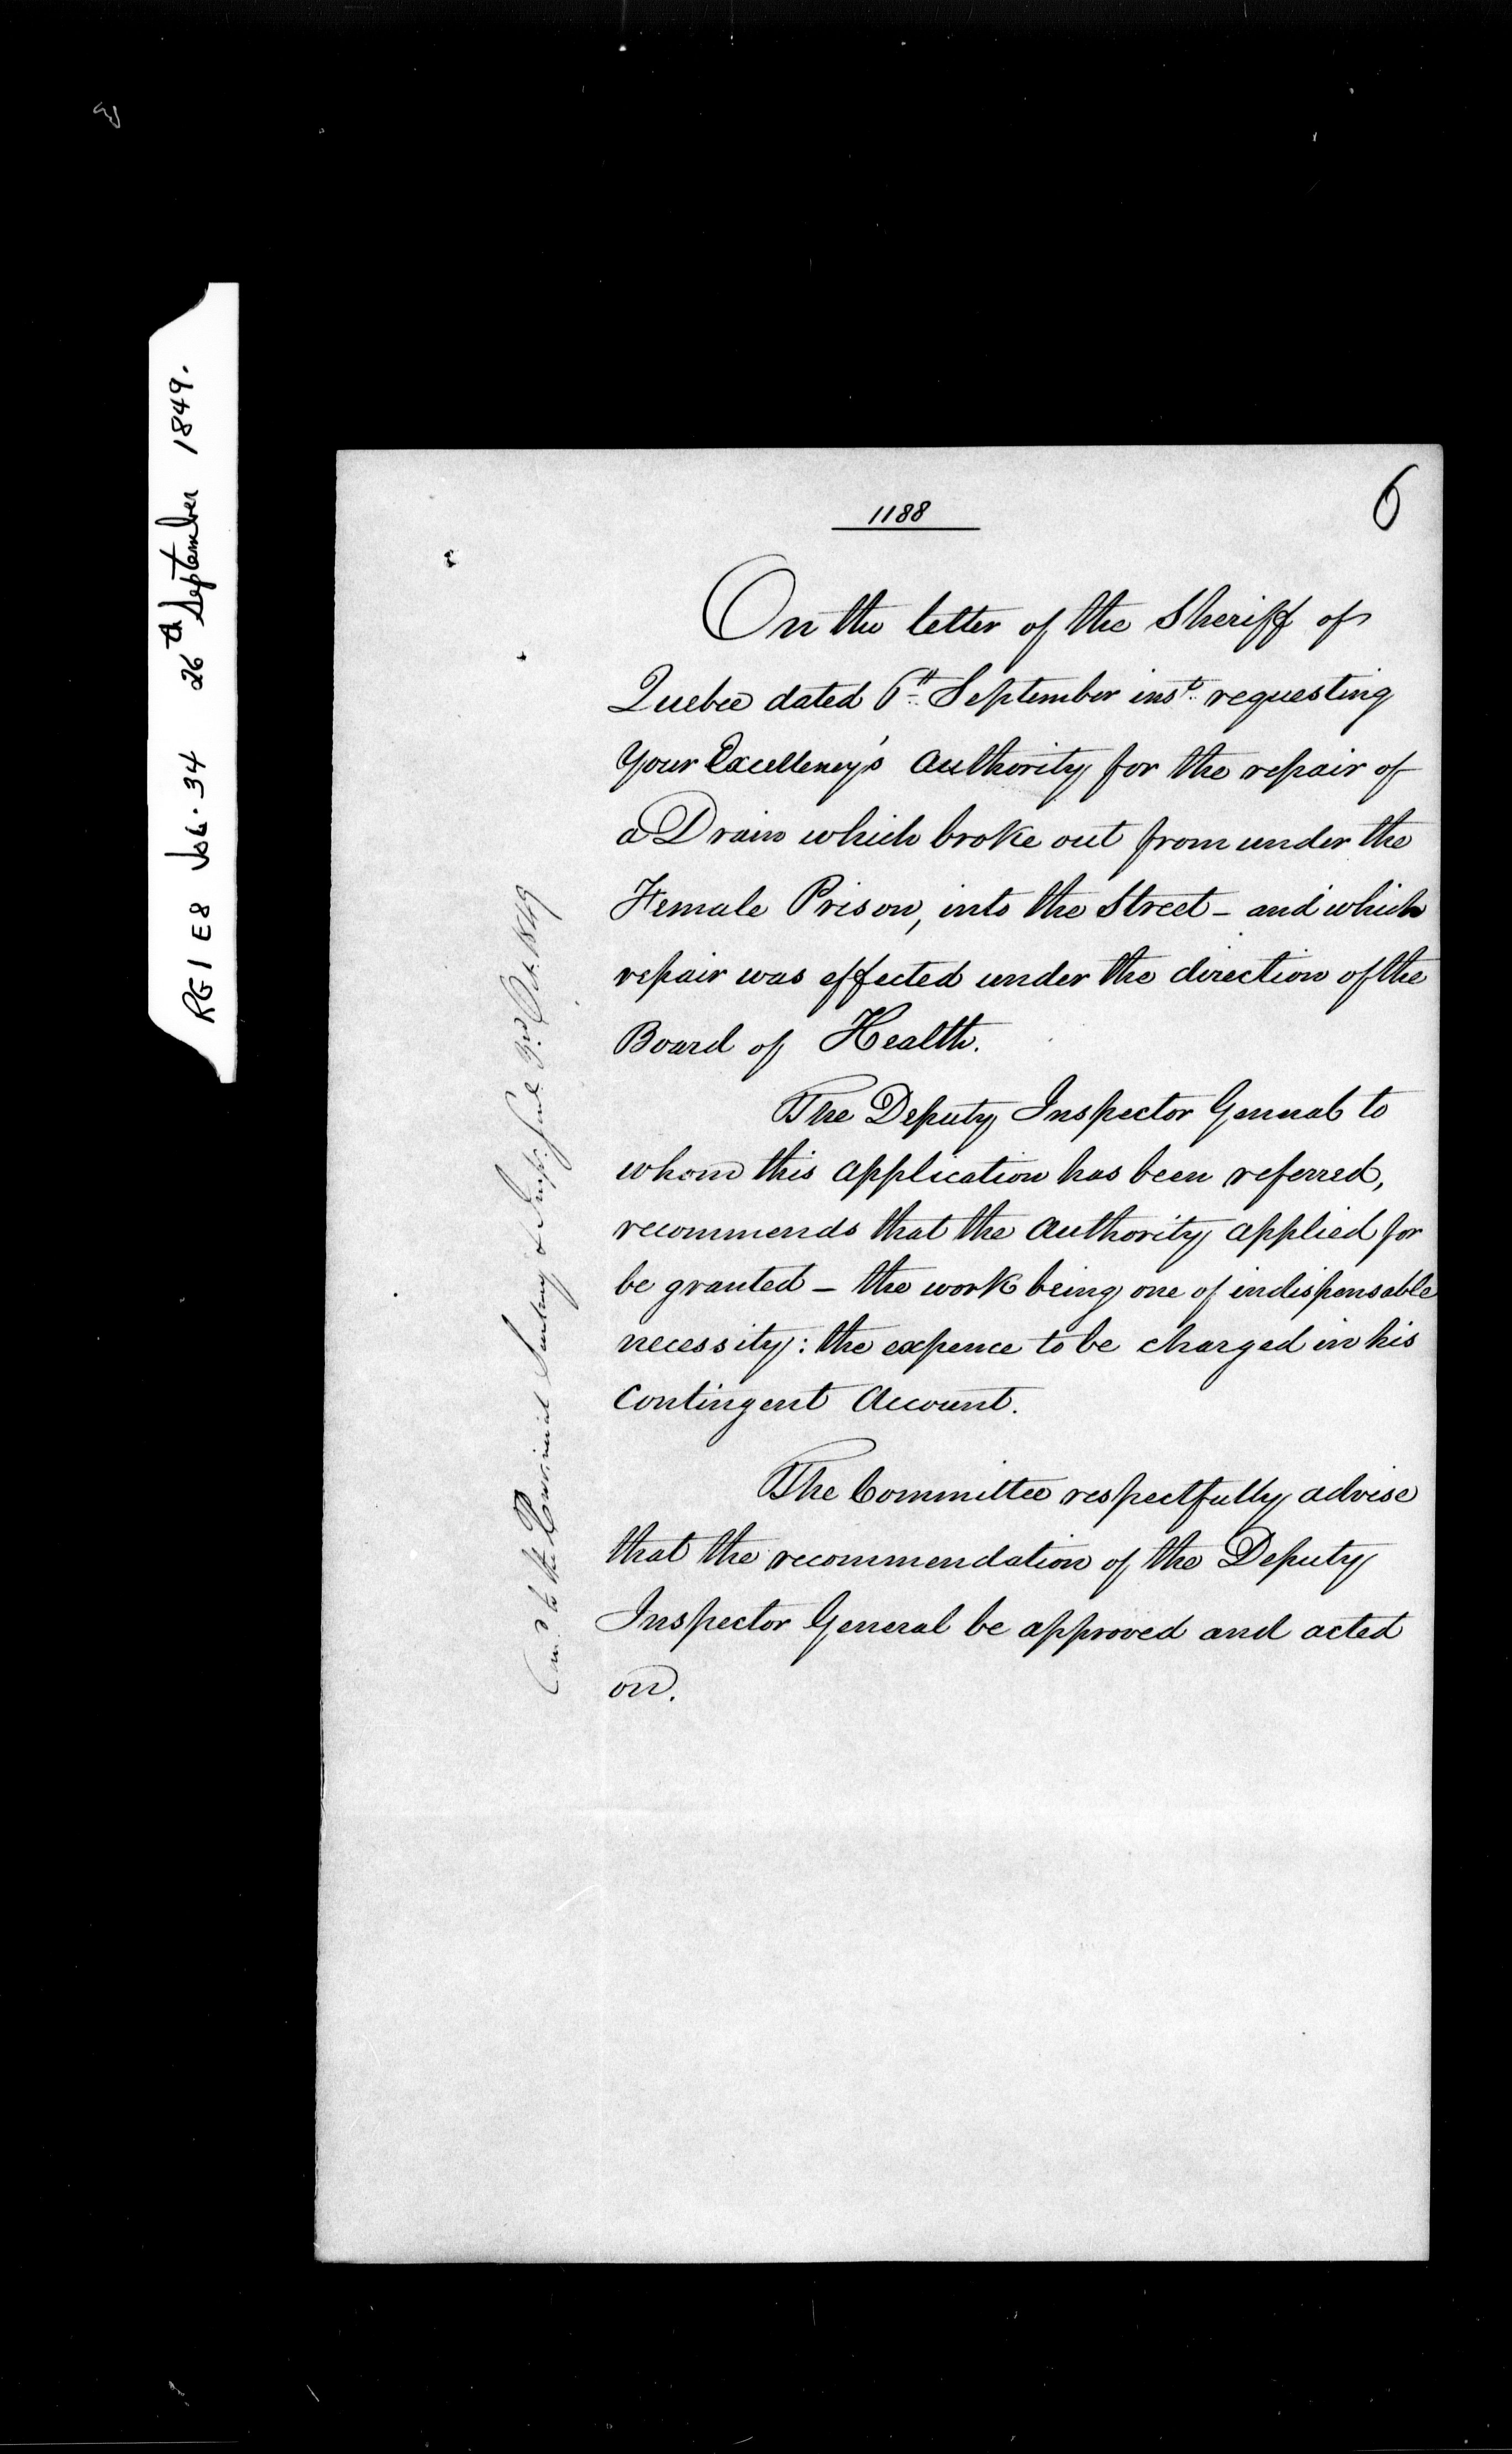 RG 1 E8 Vol. 34 26th September 1849.
1188
6
On the letter of the Sheriff of
Quebec dated 6th September inst. requesting
Your Excellency's authority for the repair of
a Drain which broke out from under the
Female Prison, into the Street - and which
repair was effected under the direction of the
Board of Health.
The Deputy Inspector General to
whom this application has been referred,
recommends that the authority applied for
be granted - the work being one of indispensable
necessity: the expence to be charged in his
Contingent Account.
The Committee respectfully advise
that the recommendation of the Deputy
Inspector General be approved and acted
on.
to the Provincial Secretary & Insp. Genl. 3rd Oct. 1849